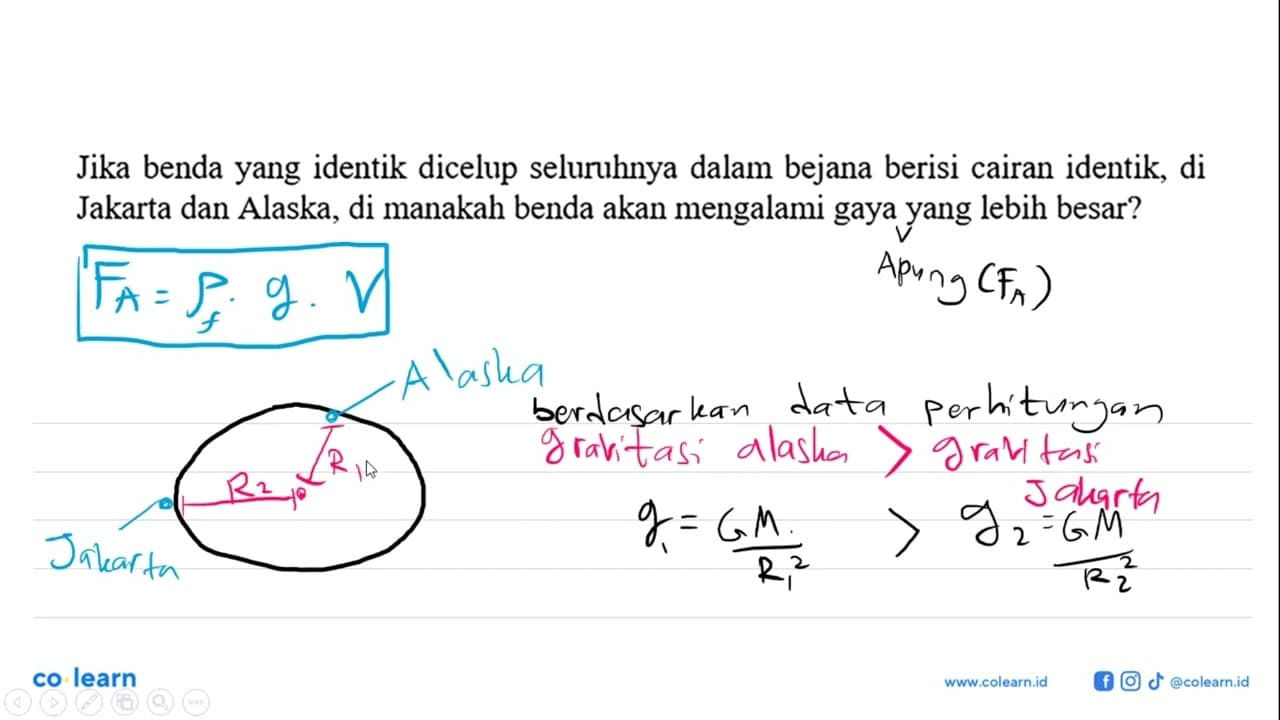 Jika benda yang identik dicelup seluruhnya dalam bejana berisi cairan identik, di
Jakarta dan Alaska, di manakah benda akan mengalami gaya yang lebih besar?
v
Apung (F_A)
F_A = ρ_f . g . V
Alaska
berdasarkan data perhitungan
gravitasi alaska > gravitasi
Jakarta
R_1
R_2
Jakarta
g_1 = GM. / R_1^2 > g_2 = GM / R_2^2
co learn
www.colearn.id
@colearn.id